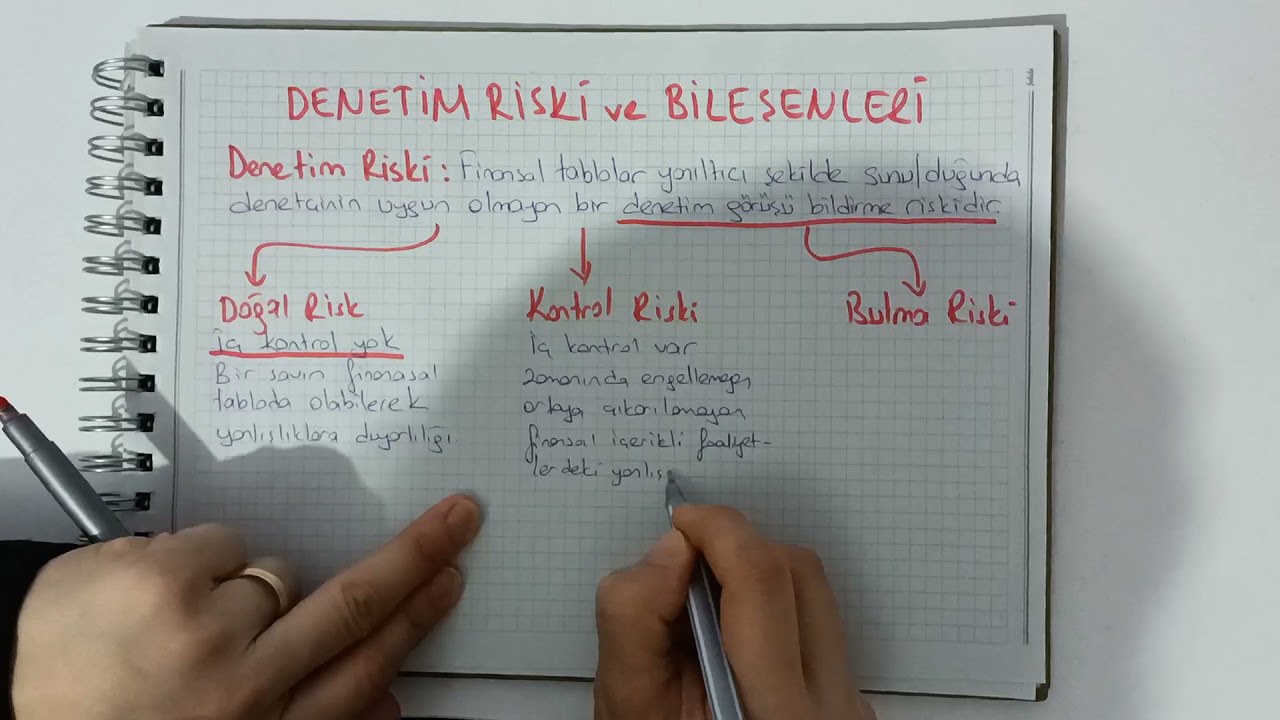 DENETİM RİSKİ ve BİLEŞENLERİ
Denetim Riski: Finansal tablolar yanıltıcı şekilde sunulduğunda
denetçinin uygun olmayan bir denetim görüşü bildirme riskidir.
Doğal Risk
İç kontrol yok
Bir savın finansal
tabloda olabilecek
yanlışlıklara duyarlılığı.
Kontrol Riski
İç kontrol var
zamanında engellemeyen
ortaya çıkarılamayan
finansal içerikli faaliyet-
lerdeki yanlış
Bulma Riski